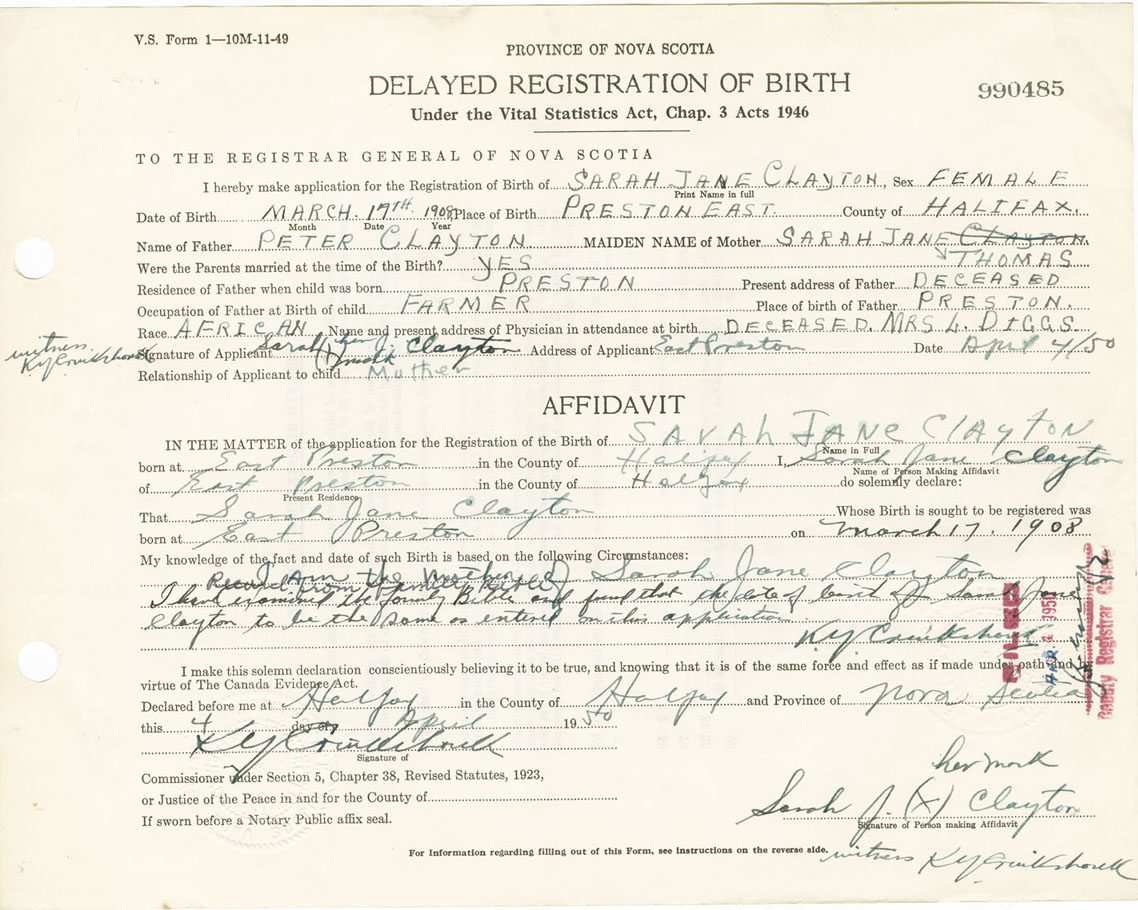 V.S. Form 1—10M-11-49
PROVINCE OF NOVA SCOTIA
DELAYED REGISTRATION OF BIRTH
990485
Under the Vital Statistics Act, Chap. 3 Acts 1946
TO THE REGISTRAR GENERAL OF NOVA SCOTIA
I hereby make application for the Registration of Birth of SARAH JANE CLAYTON, Sex FEMALE
Print Name in full
Date of Birth MARCH. 17TH. 1908 Place of Birth PRESTON EAST. County of HALIFAX.
Month Date Year
Name of Father PETER CLAYTON MAIDEN NAME of Mother SARAH JANE CLAYTON.
Were the Parents married at the time of the Birth? YES THOMAS
Residence of Father when child was born PRESTON Present address of Father DECEASED
Occupation of Father at Birth of child FARMER Place of birth of Father PRESTON.
Race AFRICAN Name and present address of Physician in attendance at birth DECEASED. MRS L. DIGGS.
witness
Signature of Applicant Sarah J. (X) her mark Clayton Address of Applicant East Preston Date April 4/50
Relationship of Applicant to child Mother
AFFIDAVIT
IN THE MATTER of the application for the Registration of the Birth of SARAH JANE CLAYTON
Name in Full
born at East Preston in the County of Halifax I, Sarah Jane Clayton
Name of Person Making Affidavit
of East Preston in the County of Halifax do solemnly declare:
Present Residence
That Sarah Jane Clayton Whose Birth is sought to be registered was
born at East Preston on March 17. 1908
My knowledge of the fact and date of such Birth is based on the following Circumstances:
I am the mother of Sarah Jane Clayton
Record from
I have examined the family Bible and find that the date of birth of Sarah Jane
Clayton to be the same as entered on this application.
I make this solemn declaration conscientiously believing it to be true, and knowing that it is of the same force and effect as if made under oath and by
virtue of The Canada Evidence Act.
Declared before me at Halifax in the County of Halifax and Province of Nova Scotia
this 4 day of April 1950
Signature of
Commissioner under Section 5, Chapter 38, Revised Statutes, 1923,
or Justice of the Peace in and for the County of
If sworn before a Notary Public affix seal.
her mark
Sarah J. (X) Clayton
Signature of Person making Affidavit
For Information regarding filling out of this Form, see instructions on the reverse side.
witness
APR. 4 1950
Deputy Registrar